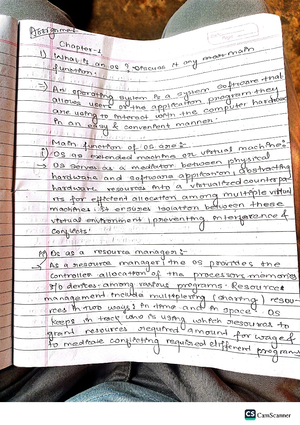 Assignment
Chapter-1
1) What is an OS? Discuss it any main main
function.
⇒ An operating system is a system software that
allows users of the application program they
are using to interact with the computer hardware
in an easy & convenient manner.
Main function of OS are:-
i) OS as extended machine or virtual machine:-
→ OS serves as a mediator between physical
hardware and software application, abstracting
hardware resources into a virtualized counterpa
rts for efficient allocation among multiple virtual
machines. It ensures isolation between these
virtual environment, preventing interference &
conflicts.
ii) OS as a resource manager:-
→ As a resource manager, the OS provides the
controlled allocation of the processors, memories
I/O devices among various programs. Resource
management include multiplexing (sharing) resou-
rces in two ways: in time and in space. OS
keeps in track who is using which resources to
grant resources required amount for
to mediate conflicting required different program
CS CamScanner